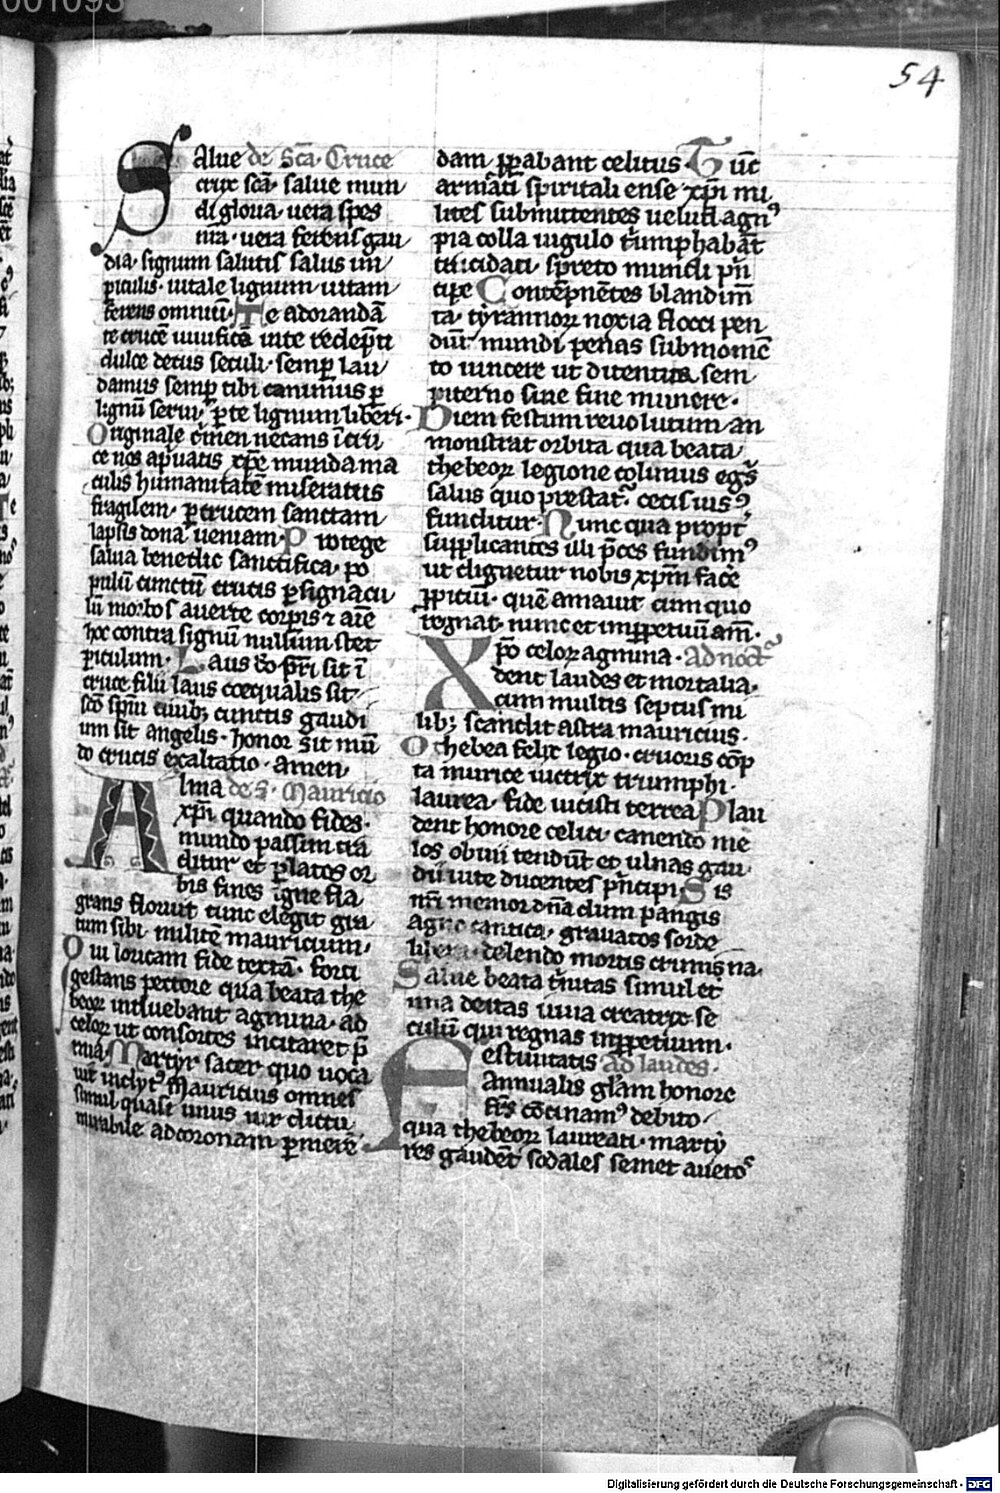 54
Salue de Scā. Cruce
crux scā. salue mun
di gloria. uera spes
nr̄a. uera ferens gau
dia. signum salutis salus in
ꝑiculis. uitale lignum uitam
ferens omniū. Te adorandā
te crucē uiuificā in te redēpti
dulce decus seculi. semꝑ lau
damus semꝑ tibi canimus ꝑ
lignū serui. ꝑ te lignum liberi.
Originale crimen necans ī cru
ce nos apͥuatis xp̄e munda ma
culis humanitatē miseratus
fragilem. ꝑ crucem sanctam
lapsis dona ueniam. Protege
salua benedic sanctifica. po
pulū cunctū crucis ꝑ signacu
lū morbos auerte corꝑis ⁊ aīe
hoc contra signū nullum stet
ꝑiculum. Laus dō pr̄i sit ī
cruce filii laus coequalis sit
scō sp̄iui cuibꝫ cunctis gaudi
um sit angelis. honor sit mū
do crucis exaltatio. amen.
Alma de s. Mauricio
xp̄i quando fides.
mundo passim cra
ditur et ꝑ latos or
bis fines igne fla
grans floruit tunc elegit gra
tum sibi militē mauricium.
Qui loricam fide textā. forti
gestans pectore qua beata the
beoꝝ influebant agmina. ad
celoꝝ ut consortes incitaret p̄
mia. Martyr sacer quo uoca
uit inclytꝰ Mauricius omnes
simul quasi unus uir dictu
mirabile ad coronam ꝑmere
dam ꝓꝑabant celitus. Tūc
armāti spiritali ense xp̄i mi
lites submittentes uelut agnꝰ
pia colla iugulo tͥumphabāt
trucidati. spreto mundi pͥn
cipe Contēpnētes blandim̄
ta. tyrannoꝝ noxia flocci pen
dūt mundi penas sub momē
to uincere ut ditentur sem
piterno sine fine munere.
Diem festum reuolutum an
monstrat orbita qua beata
thebeoꝝ legione colimus egͥs
salus quo prestat. cecis uisꝰ
funditur. Nunc qua propt̄
supplicantes illi p̄ces fundimꝰ
ut dignetur nobis xp̄m facē
ꝓpiciū. quē amauit cum quo
regnat. nunc et in ꝑpetuū am̄.
Xpō celoꝝ agmina. Ad noct̄
dent laudes et mortalia.
cum multis septus mi
libꝫ scandit astra mauricius.
O thebea felix legio. cruoris cōp
ta murice uictrix triumphi.
laurea. fide uicisti terrea Plau
dent honore celici. canendo me
los obuii tendūt et ulnas gau
dii uite ducentes pͥncipi. Sis
nr̄i memor dn̄a dum pangis
agno cantica. grauatos sorde
libera. delendo mortis crimina.
Salue beata tͥnitas simul et
una deitas una creatrix se
culū qui regnas in ꝑpetuum.
Festiuitatis Ad laudes.
annualis gl̄am honore
fr̄s cōcinamꝰ debito
qua thebeoꝝ laureati. marty
res gaudēt sodales semet auctoͬs
Digitalisierung gefördert durch die Deutsche Forschungsgemeinschaft - DFG